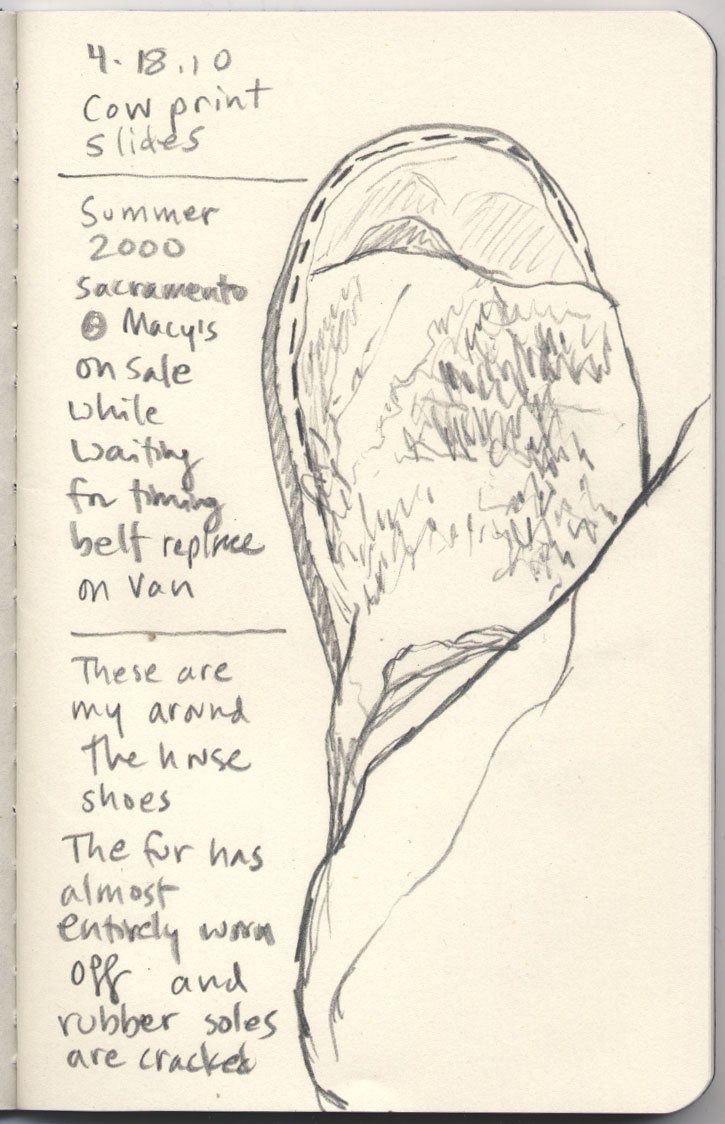 4.18.10
Cow print
slides
Summer
2000
sacramento
@ Macy's
on sale
while
waiting
for timing
belt replace
on van
These are
my around
the house
shoes
The fur has
almost
entirely worn
off and
rubber soles
are cracked